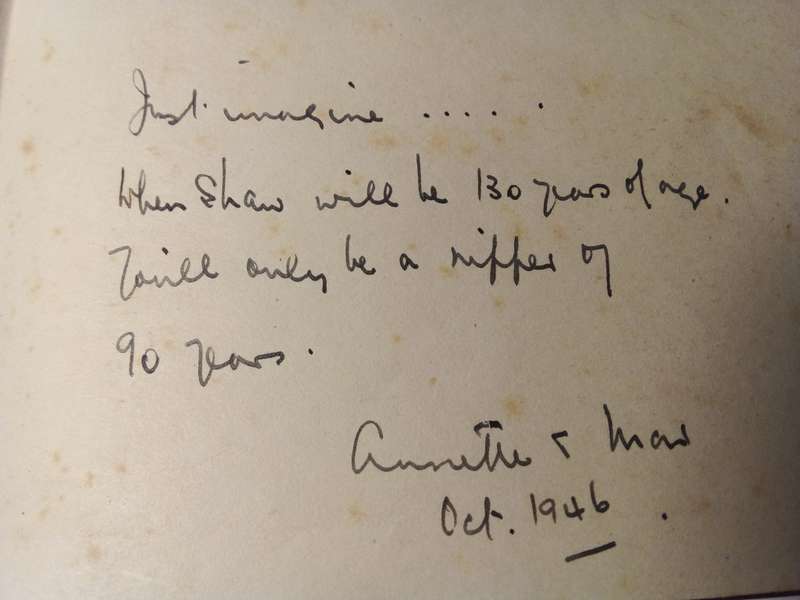 Just imagine .....
When Shaw will be 130 years of age.
You'll only be a nipper of
90 years.
Annette &
Oct. 1946.